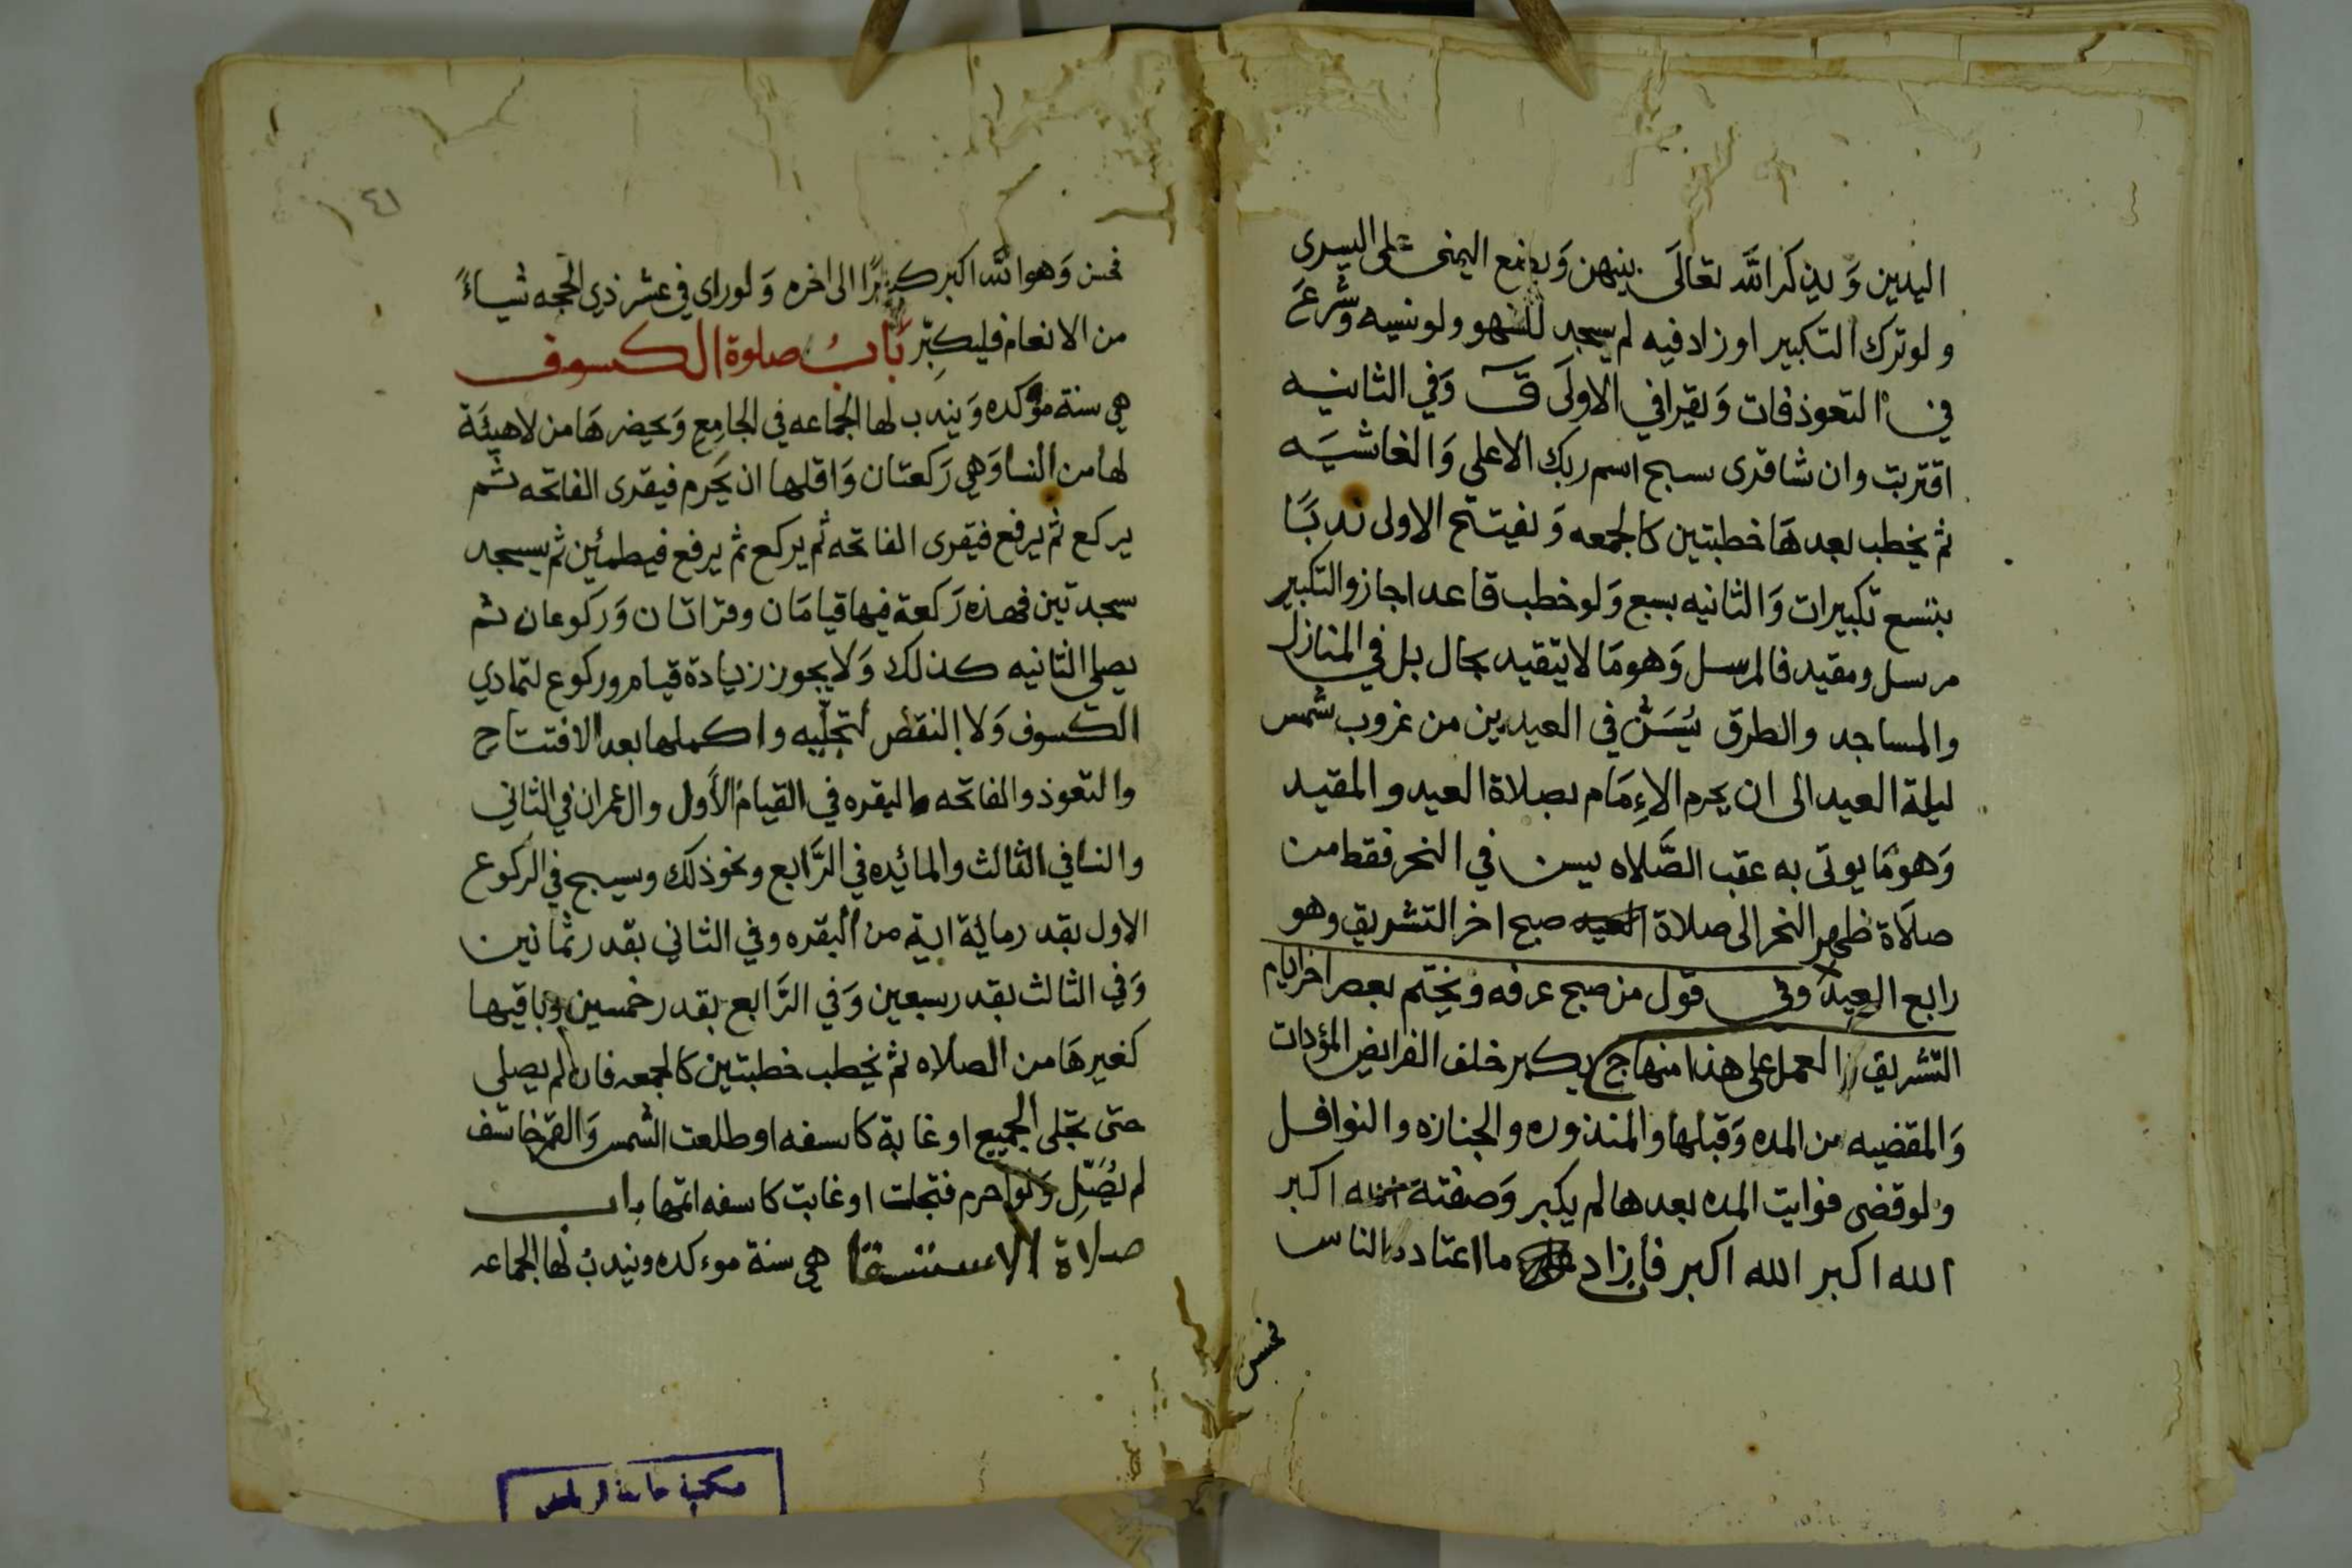 اليدين وَيذكر الله تعالَى بينهن وَيضع اليمنى على اليسرى
ولو ترك التكبير او زاد فيه لم يسجد للسهو ولو نسيه وَشرعَ
في التعوذ فات وَيقرا في الاولَى قٓ وَفي الثانيه
اقتربت وان شا قرى سبح اسم ربك الاعلى وَالغاشيَه
ثم يخطب بعدهَا خطبتين كالجمعه وَيفتتح الاولى ندبًا
بتسع تكبيرات وَالثانيه بسبع وَلو خطب قاعدا جاز والتكبير
مرسل ومقيد فالمرسل وَهو مَا لا يتقيد بحال بل في المنازل
والمساجد والطرق يُسَنّ في العيدين من غروب شمس
ليلة العيد الى ان يحرم الاِمَام بصلاة العيد والمقيد
وَهو مَا يوتى به عقب الصَّلاه يسن في النحر فقط من
صلاَة ظهر النحر الى صلاة العيد صبح اخر التشريق وهو
رابع العيد وفي قول من صبح عرفه ويختم بعصر اخر ايام
التشريق والعمل على هذا منهاج ويكبر خلف الفرايض المؤدات
وَالمقضيه من المده وَقبلها والمنذوره والجنازه والنوافل
ولو قضى فوايت المده بعدها لم يكبر وَصفته الله اكبر
الله اكبر الله اكبر فان زاد ما اعتاده الناس
فحسن
٤١
فحسن وَهو الله اكبر كبيرًا الى اخره وَلو راى في عشر ذي الحجه شياءً
من الانعام فليكبِّر بَابُ صلوة الكسوف
هي سنة مؤكده وَيندب لها الجماعه في الجامع وَيحضرهَا من لا هيئَة
لها من النسا وَهي رَكعتان وَاقلها ان يَحرم فيقرى الفاتحه ثم
يركع ثم يرفع فيقرى الفاتحه ثم يركع ثم يرفع فيطمئن ثم يسجد
سجدتين فهذه رَكعة فيها قيامَان وقراتان وَركوعان ثم
يصلي الثانيه كذلك وَلا يجوز زيادة قيام وركوع لتمادي
الكسوف وَلا النقص لتجليه واكملها بعد الافتتاح
والتعوذ والفاتحه والبقره في القيام الأول وال عمران في الثاني
والنسا في الثالث والمائيده في الرَّابع ونحو ذلك ويسبح في الركوع
الاول بقدر مائة اية من البقره وفي الثاني بقدر ثمانين
وَفي الثالث بقدر سبعين وَفي الرَّابع بقدر خمسين وباقيها
كغيرهَا من الصلاه ثم يخطب خطبتين كالجمعه فان لم يصلى
حتى تجلى الجميع او غابة كاسفه او طلعت الشمس وَالقمر خاسف
لم يُصَلِّ وَلو احرم فتجلت او غابت كاسفه اتمها باب
صلاة الاستسقا هي سنة موءكده ويندبُ لها الجماعه
مكتبة جامعة الرياض